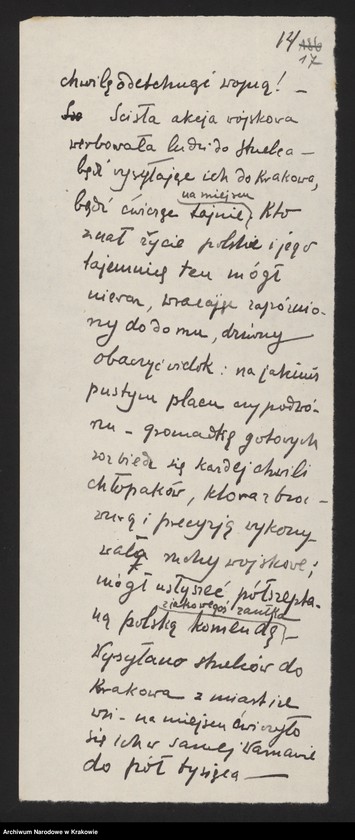 14 186
17
chwilę odetchnąć wojną! —
Ścisła akcja wojskowa
werbowała ludzi do Strzelca —
bądź wysyłając ich do Krakowa,
na miejscu
bądź ćwicząc tajnie. Kto
znał życie polskie i jego
tajemnicę ten mógł
nieraz, wracając zapóźnio-
ny do domu, dziwny
obaczyć widok: na jakimś
pustym placu czy podwó-
rzu — gromadkę gotowych
rozbiedz się każdej chwili
chłopaków, która z brac-
wurą i precyzją wykony-
wała ruchy wojskowe;
mógł usłyszeć półszepta-
z jakowegoś zaułka
ną polską komendę —
Wysyłano strzelców do
Krakowa z miast i ze
wsi — na miejscu ćwiczyło
się ich w samej Warszawie
do pół tysiąca —
Archiwum Narodowe w Krakowie